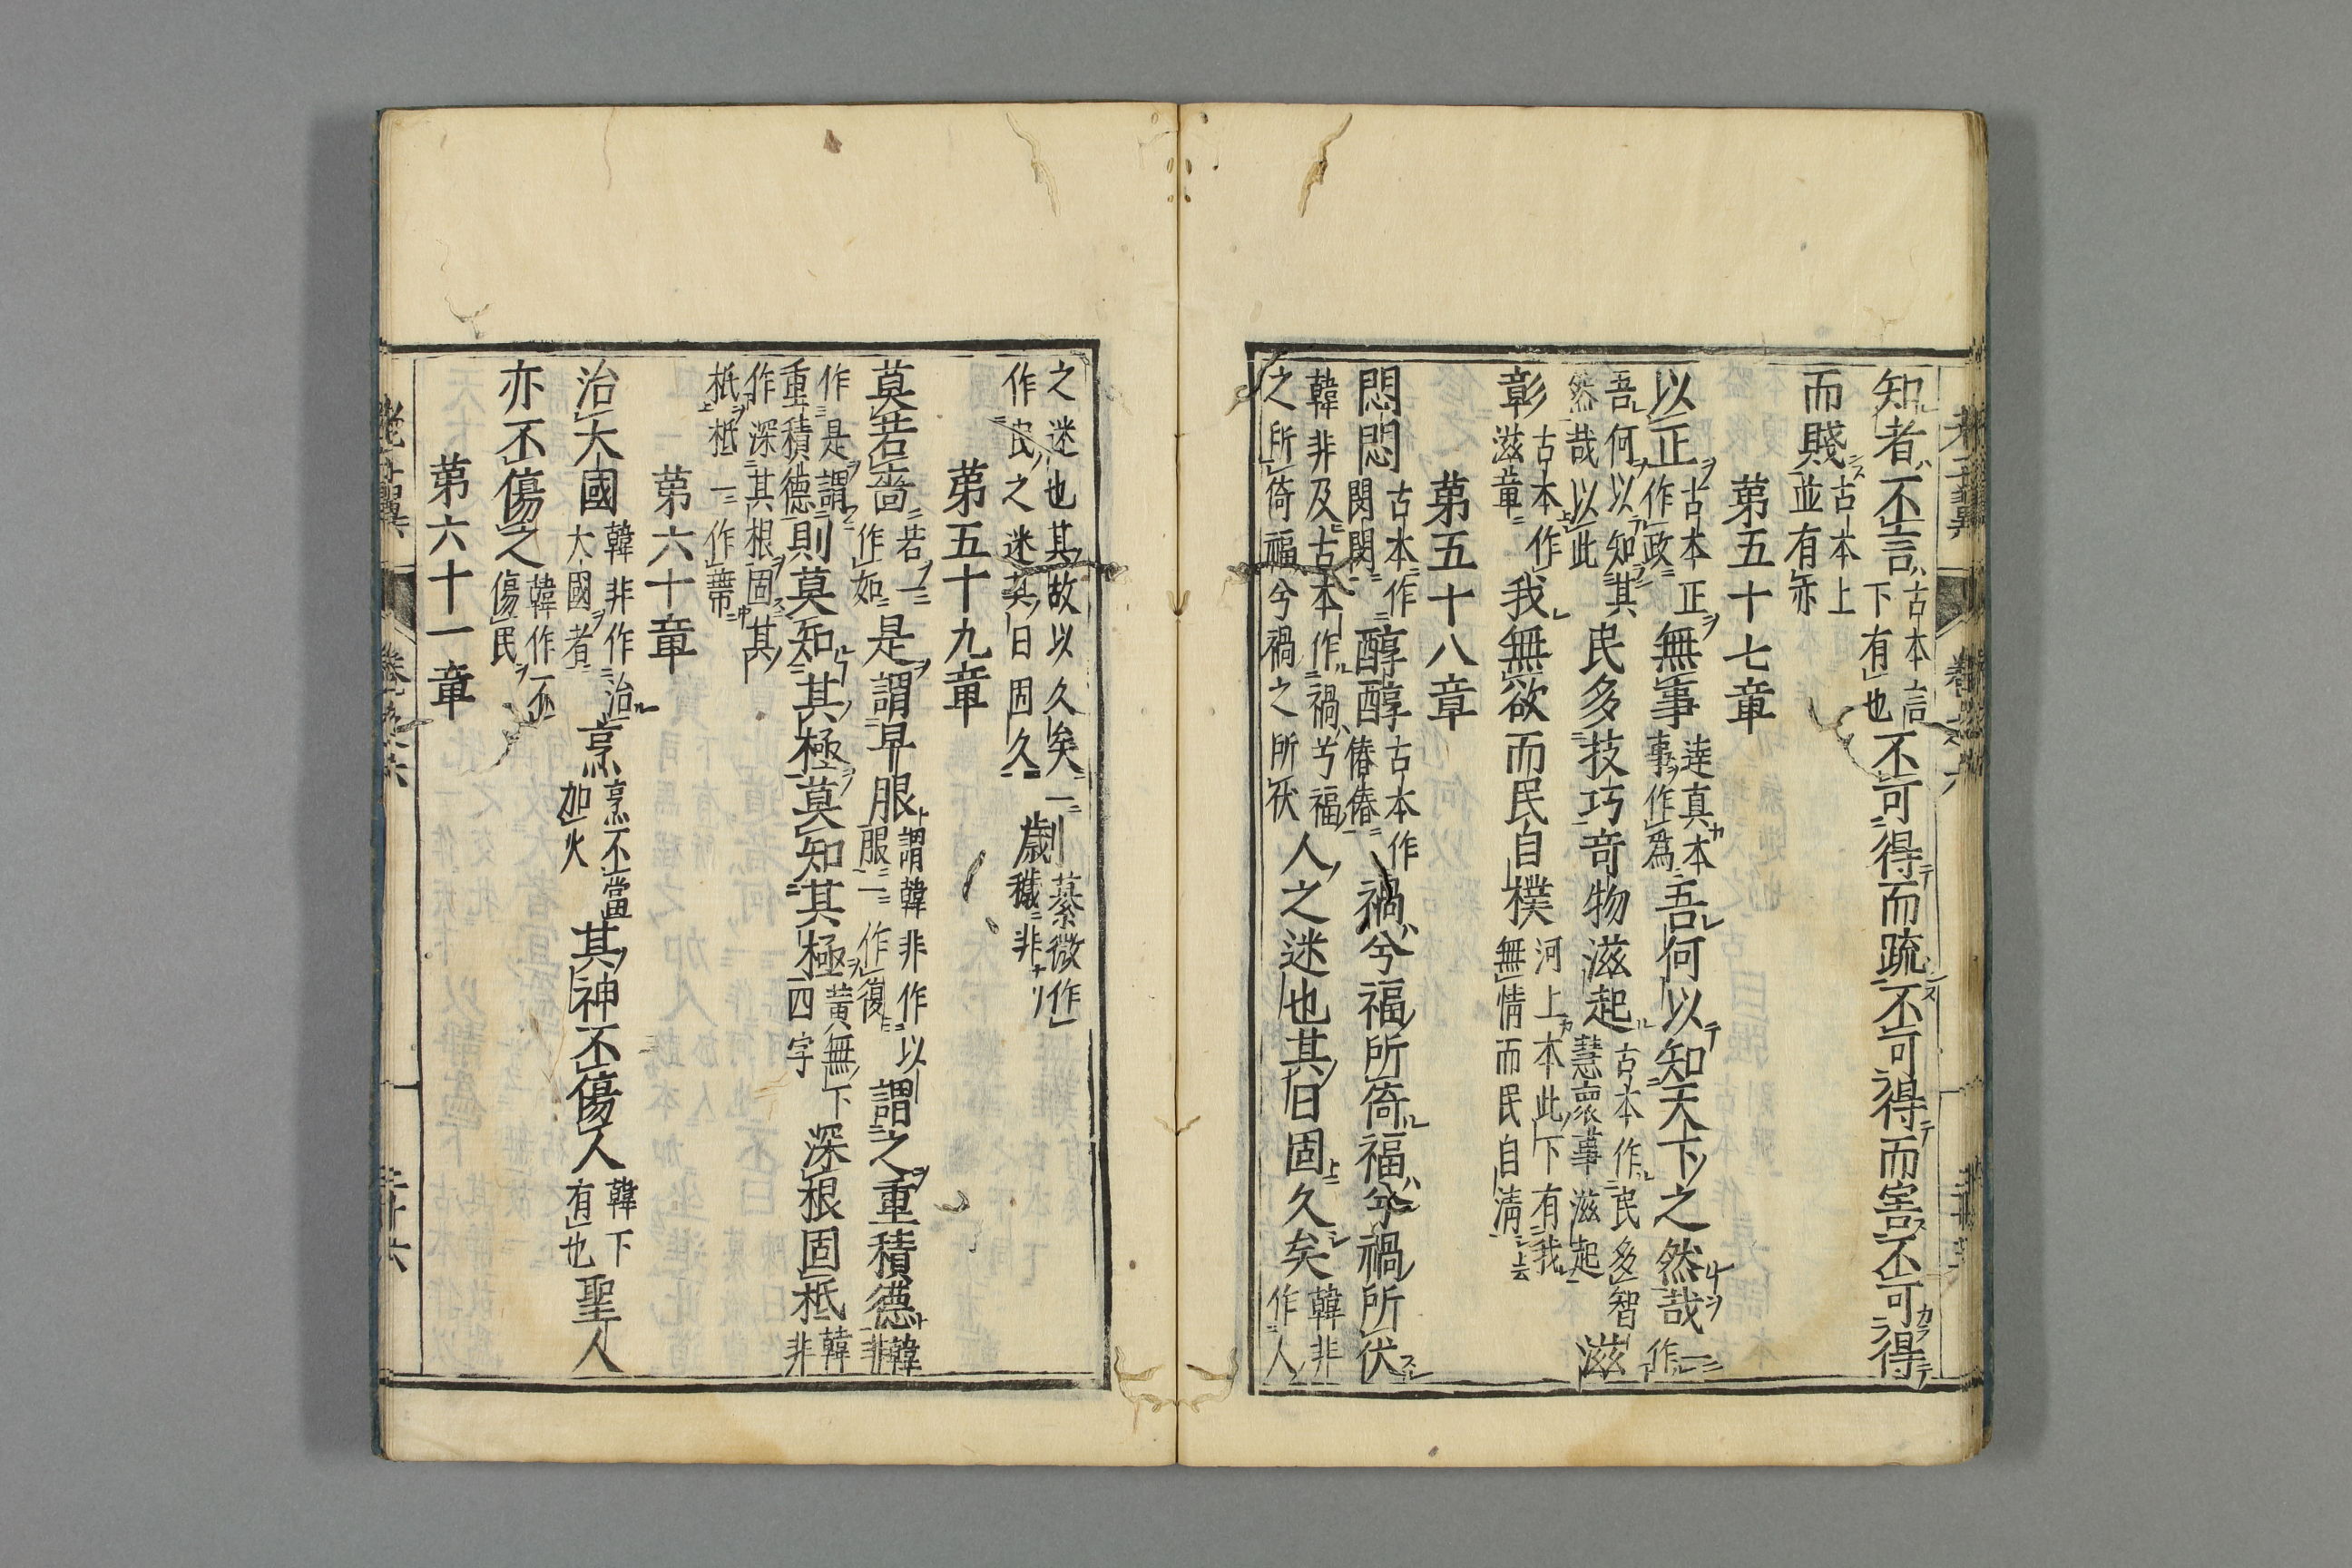 知者不言古本言下有也不可得而疏不可得而害不可得
而賤古本上並有亦
第五十七章
以正古本正作政無事達真本事作爲吾何以知天下之然哉一作
吾何以知其然哉以此民多技巧竒物滋起古本作民多智慧衺事滋起滋
彰古本作滋章我無欲而民自樸河上本此下有我無情而民自清
第五十八章
悶悶古本作閔閔醇醇古本作偆偆禍兮福所倚福兮禍所伏
韓非及古本作禍兮福之所倚福兮禍之所伏人之迷也其日固久矣韓非作人
之迷也其故以久矣一作民之迷其日固久劌綦微作歲穢非
第五十九章
莫若嗇若一作如是謂早服謂韓非作以服一作復謂之重積德韓非
作是謂重積德則莫知其極莫知其極黃無下四字深根固柢韓非
作深其根固其柢柢一作蔕
第六十章
治大國韓非作治大國者烹烹不當加火其神不傷人韓下有也聖人
亦不傷之韓作不傷民
第六十一章
老子翼
卷之六